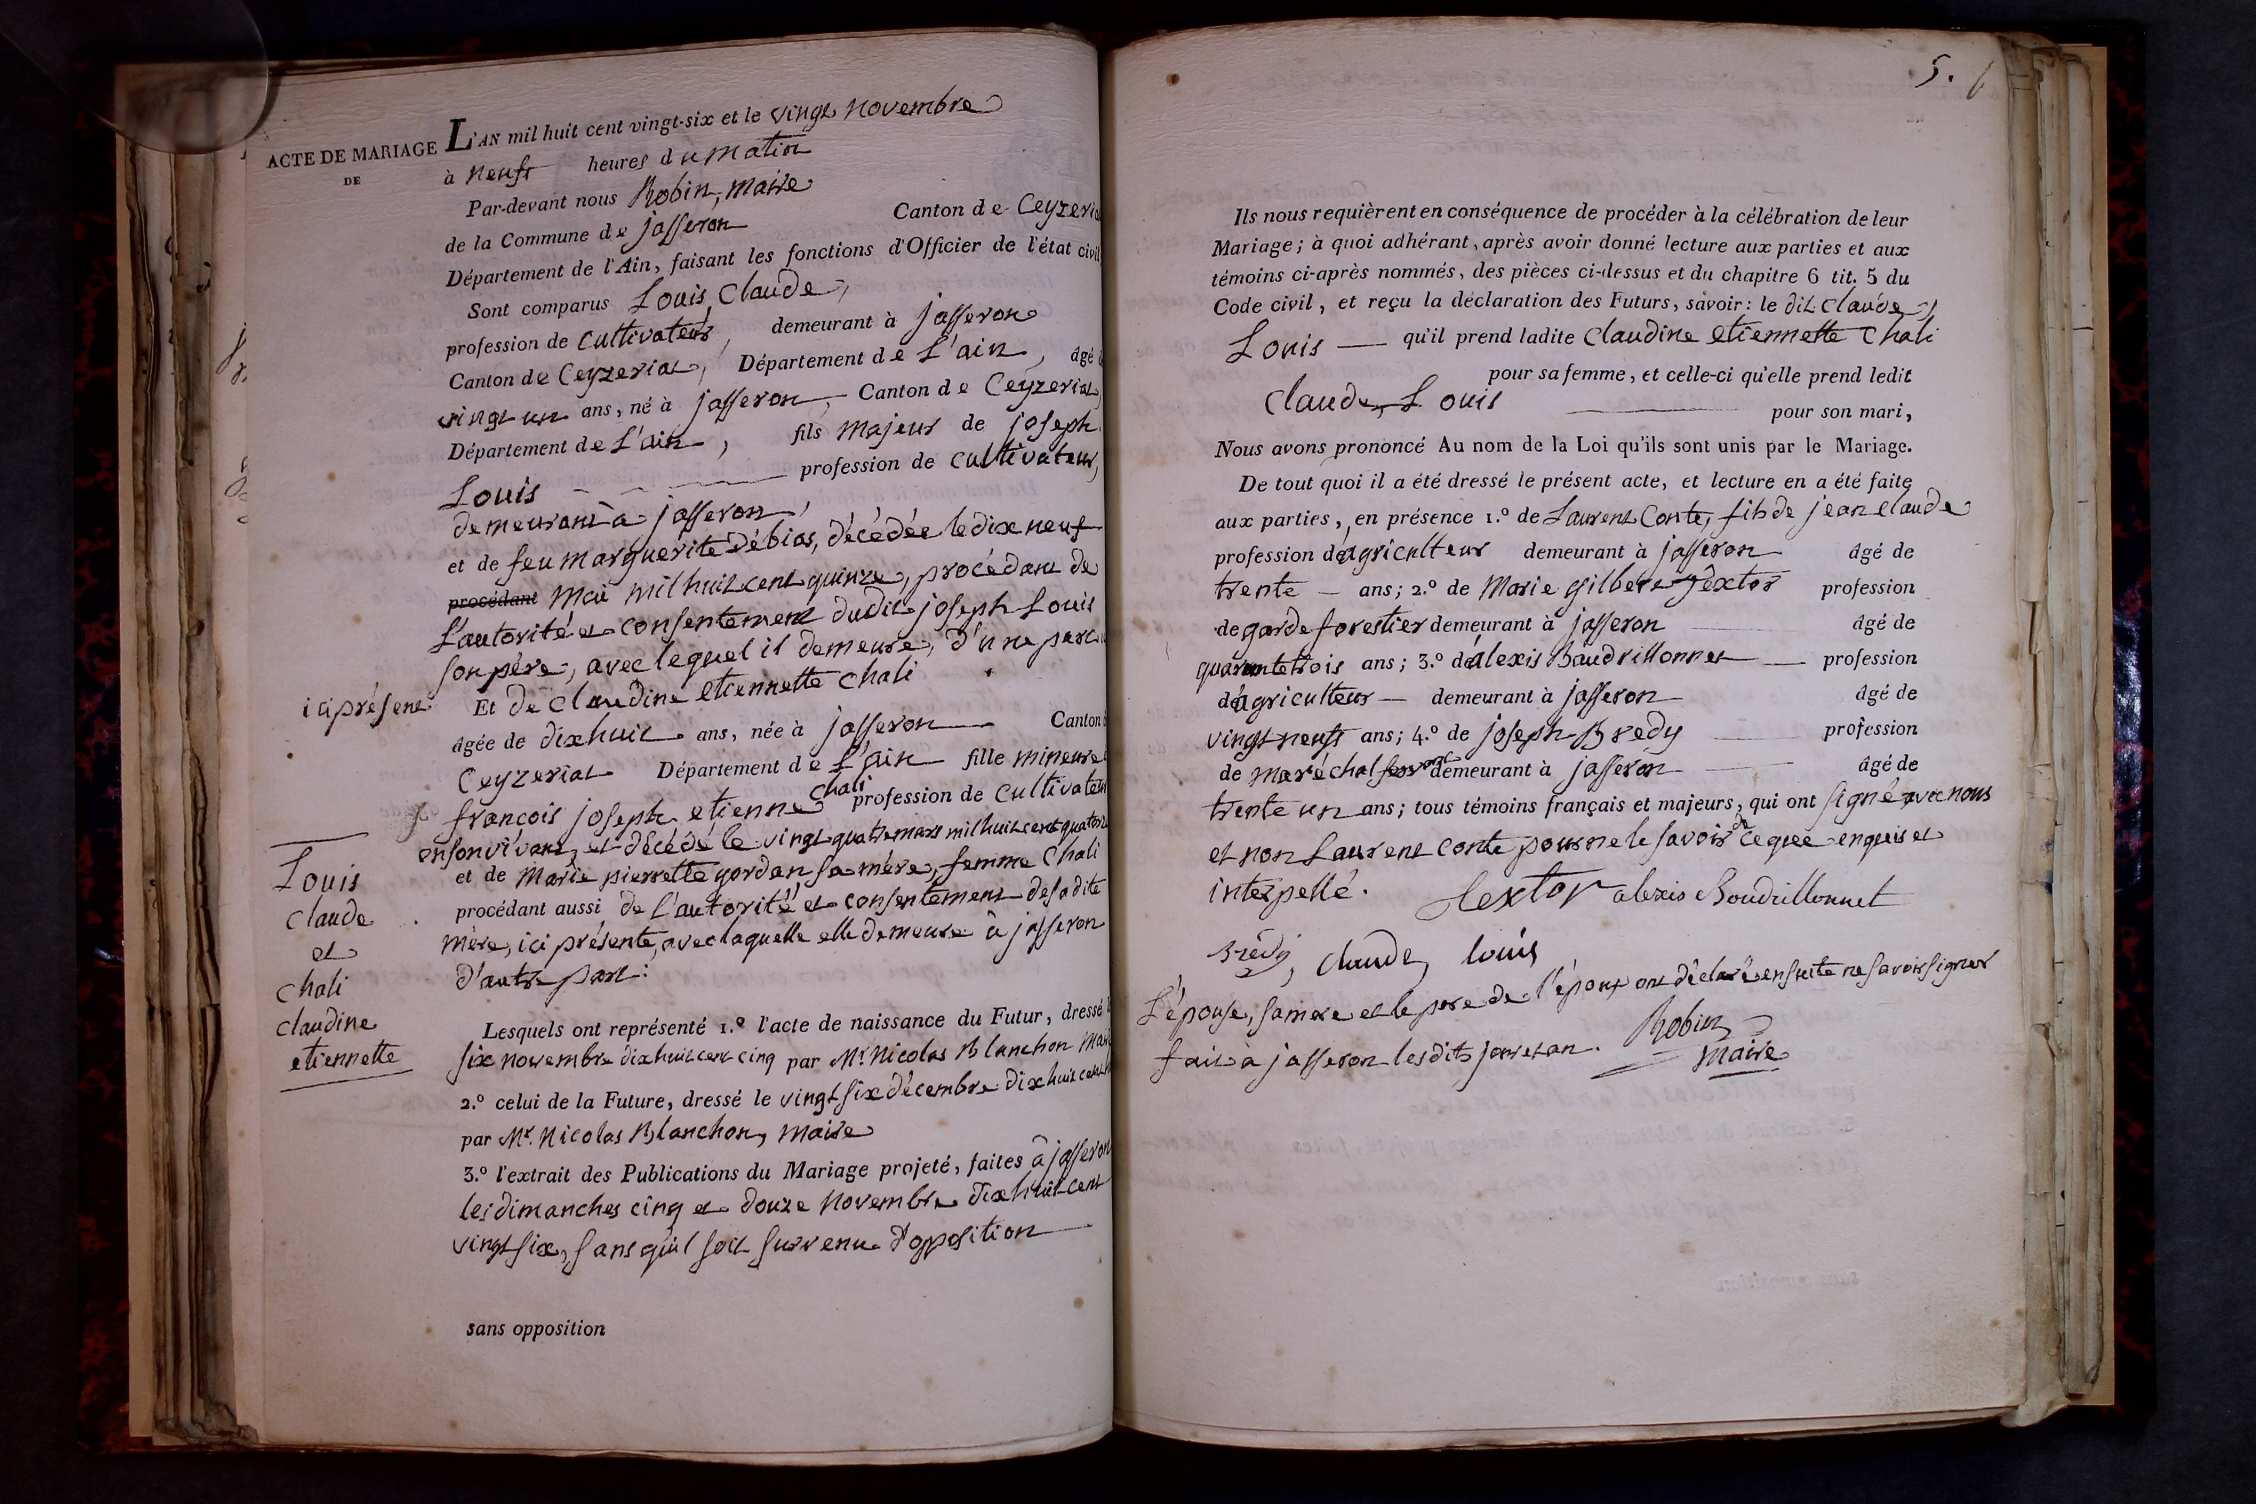 ACTE DE MARIAGE
DE
L'AN mil huit cent vingt-six et le vingt novembre
à neuf heures du matin
Par-devant nous Robin, maire
de la Commune de jasseron Canton de Ceyzeria
Département de l'Ain, faisant les fonctions d'Officier de l'état civil
Sont comparus Louis, Claude,
profession de cultivateur, demeurant à jasseron
Canton de Ceyzeriat, Département de L'ain, âgé
vingt un ans, né à jasseron, Canton de Ceyzeriat,
Département de L'ain, fils majeur de joseph
Louis profession de cultivateur,
demeurant à jasseron,
et de feu marguerite Débias, décédée le dix neuf
procédant mai mil huit cent quinze, procédant de
L'autorité et consentement dudit joseph Louis
son père, avec lequel il demeure, d'une part
ici présent
Et de claudine etiennette chali
âgée de dixhuit ans, née à jasseron Canton
Ceyzeriat Département de L'ain fille mineure
françois joseph etienne chali profession de cultivateur
en son vivant, et décédé le vingt quatre mars mil huit cent quatorze
et de marie pierrette gordan sa mère, femme chali
procédant aussi de l'autorité et consentement de sa dite
mère, ici présente, avec laquelle elle demeure à jasseron
d'autre part:
Louis
claude
et
chali
claudine
etiennette
Lesquels ont représenté 1.º l'acte de naissance du Futur, dressé
six novembre dixhuit cent cinq par Mr. Nicolas Blanchon
2.º celui de la Future, dressé le vingt six décembre dixhuit cent
par Mr. Nicolas Blanchon, maire
3.º l'extrait des Publications du Mariage projeté, faites à jasseron
les dimanches cinq et douze novembre dixhuit cent
vingt six, sans qu'il soit survenu d'opposition
sans opposition
5.
Ils nous requièrent en conséquence de procéder à la célébration de leur
Mariage; à quoi adhérant, après avoir donné lecture aux parties et aux
témoins ci-après nommés, des pièces ci-dessus et du chapitre 6 tit. 5 du
Code civil, et reçu la déclaration des Futurs, savoir: le dit claude,
Louis qu'il prend ladite claudine etiennette chali
pour sa femme, et celle-ci qu'elle prend ledit
claude, Louis pour son mari,
Nous avons prononcé Au nom de la Loi qu'ils sont unis par le Mariage.
De tout quoi il a été dressé le présent acte, et lecture en a été faite
aux parties, en présence 1.º de Laurent Conte, fils de jean claude
profession d'agriculteur demeurant à jasseron âgé de
trente ans; 2.º de Marie gilbert Textor profession
de garde forestier demeurant à jasseron âgé de
quarante trois ans; 3.º d'alexis Baudrillonnet profession
d'agriculteur demeurant à jasseron âgé de
vingt neuf ans; 4.º de joseph Bredy profession
de maréchal ferrant demeurant à jasseron âgé de
trente un ans; tous témoins français et majeurs, qui ont signé avec nous
et non Laurent conte pour ne le savoir de ce que enquis et
interpellé. Textor alexis Boudrillonnet
Brédy, claude, louis
L'épouse, sa mere et le pere de l'époux ont déclaré ensuite ne savoir signer
fait à jasseron lesdits jour et an. Robin
maire